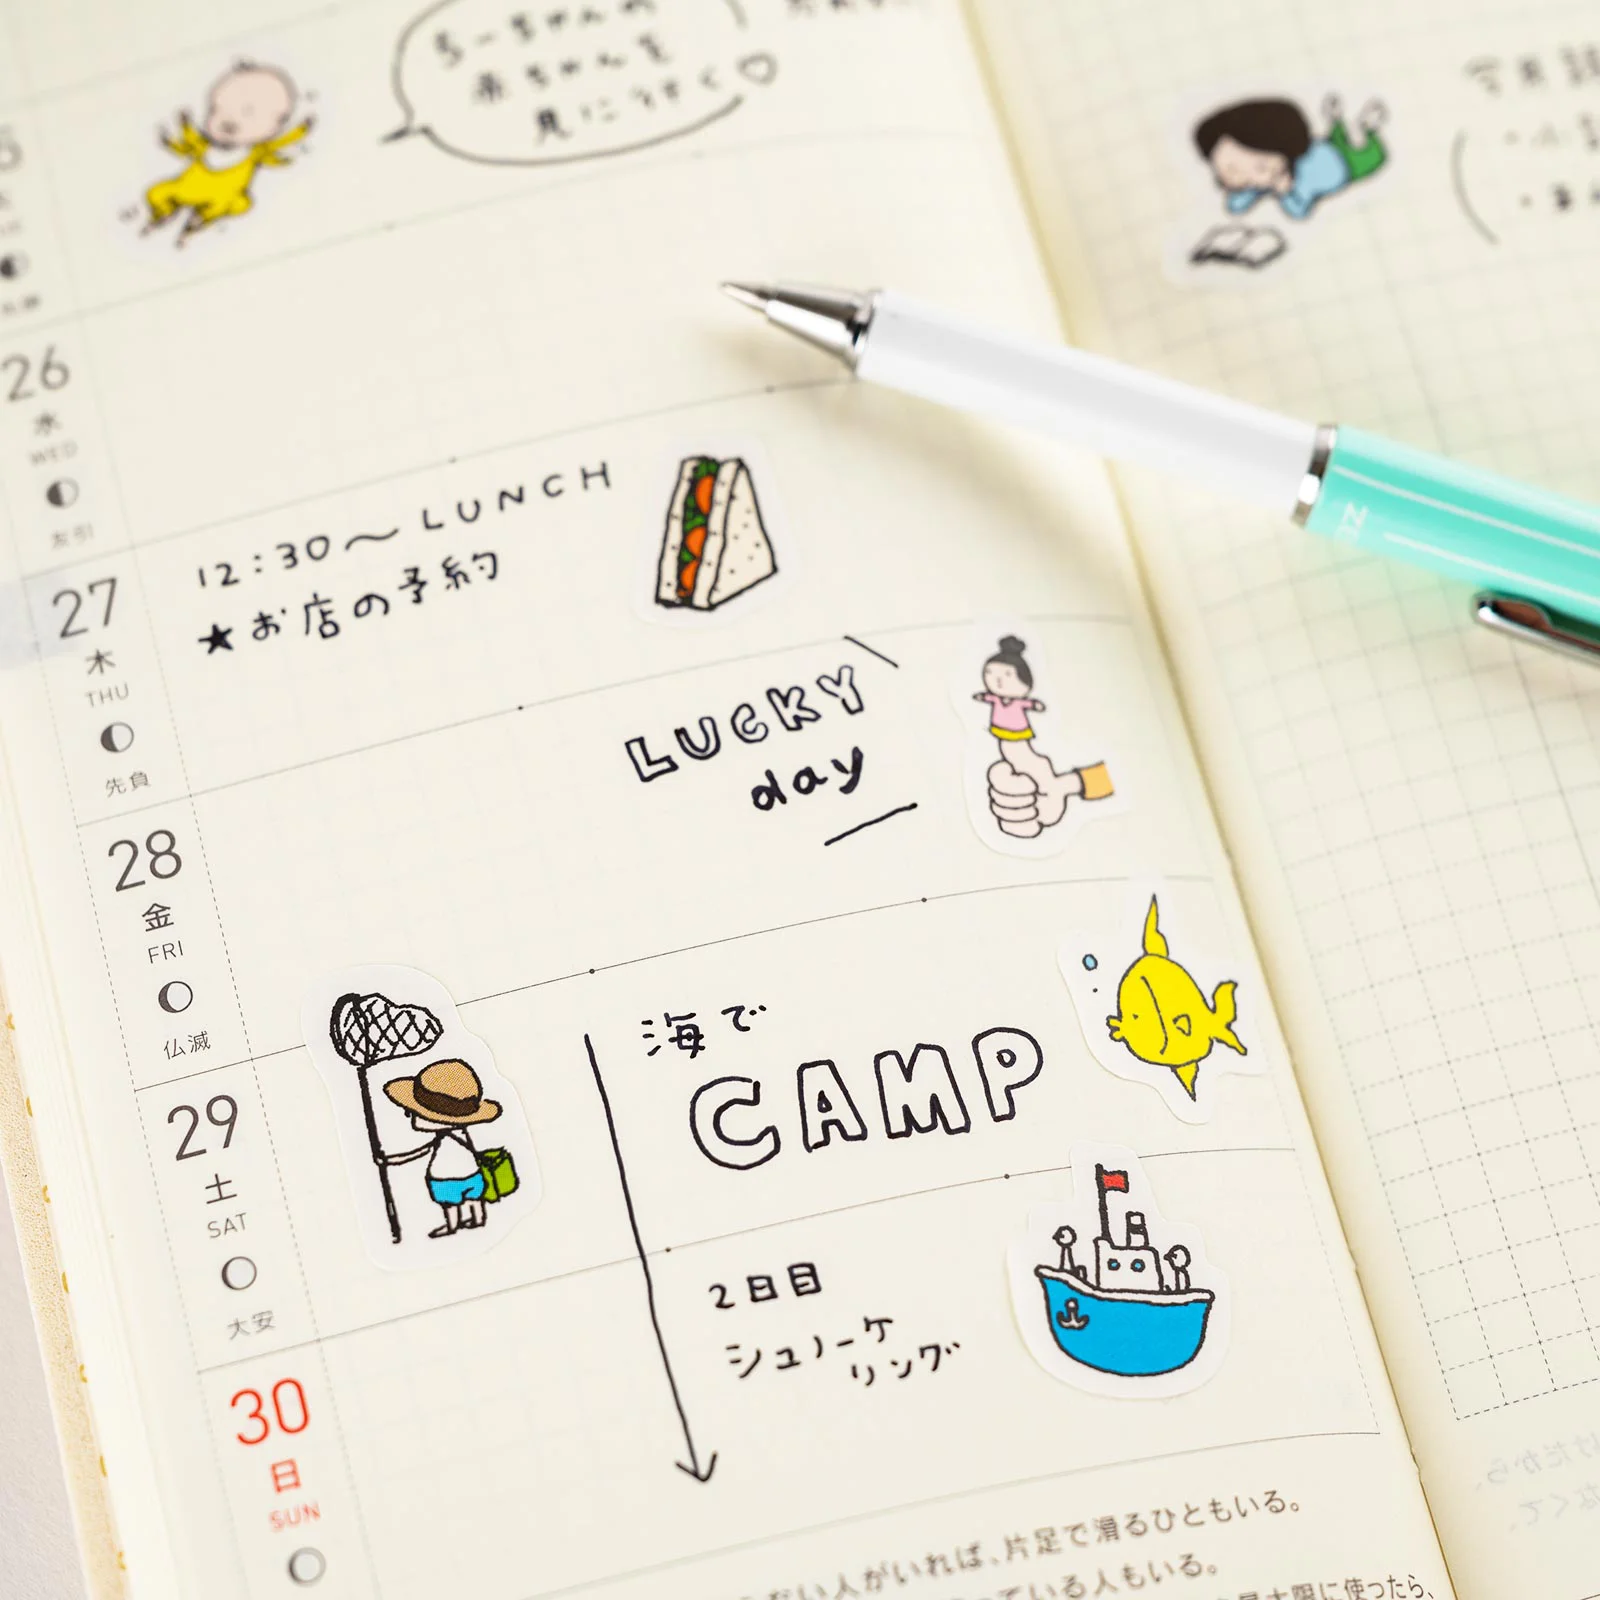 ちーちゃんの
赤ちゃんを
見にうすく♡
26
水
WED
友引
12:30〜LUNCH
★お店の予約
27
木
THU
先負
LUCKY
day
28
金
FRI
仏滅
海で
CAMP
29
土
SAT
大安
2日目
シュノーケ
リング
30
日
SUN
ない人がいれば、片足で滑るひともいる。
ている人もいる。
最大限に使ったら、